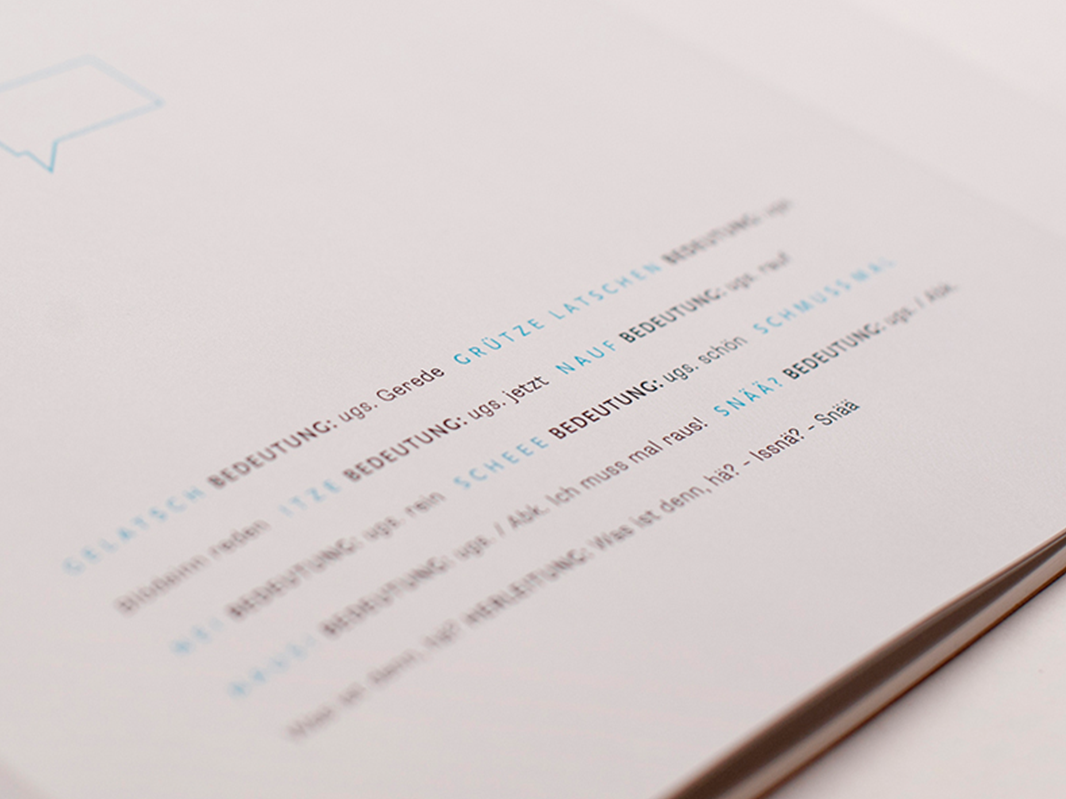 GELATSCH BEDEUTUNG: ugs. Gerede GRÜTZE LATSCHEN BEDEUTUNG: ugs.
Blödsinn reden ITZE BEDEUTUNG: ugs. jetzt NAUF BEDEUTUNG: ugs. rauf
BEDEUTUNG: ugs. rein SCHEEE BEDEUTUNG: ugs. schön SCHMUSS MAL
BEDEUTUNG: ugs. / Abk. Ich muss mal raus! SNÄÄ? BEDEUTUNG: ugs. / Abk.
denn, hä? HERLEITUNG: Was ist denn, hä? - Issnä? - Snää